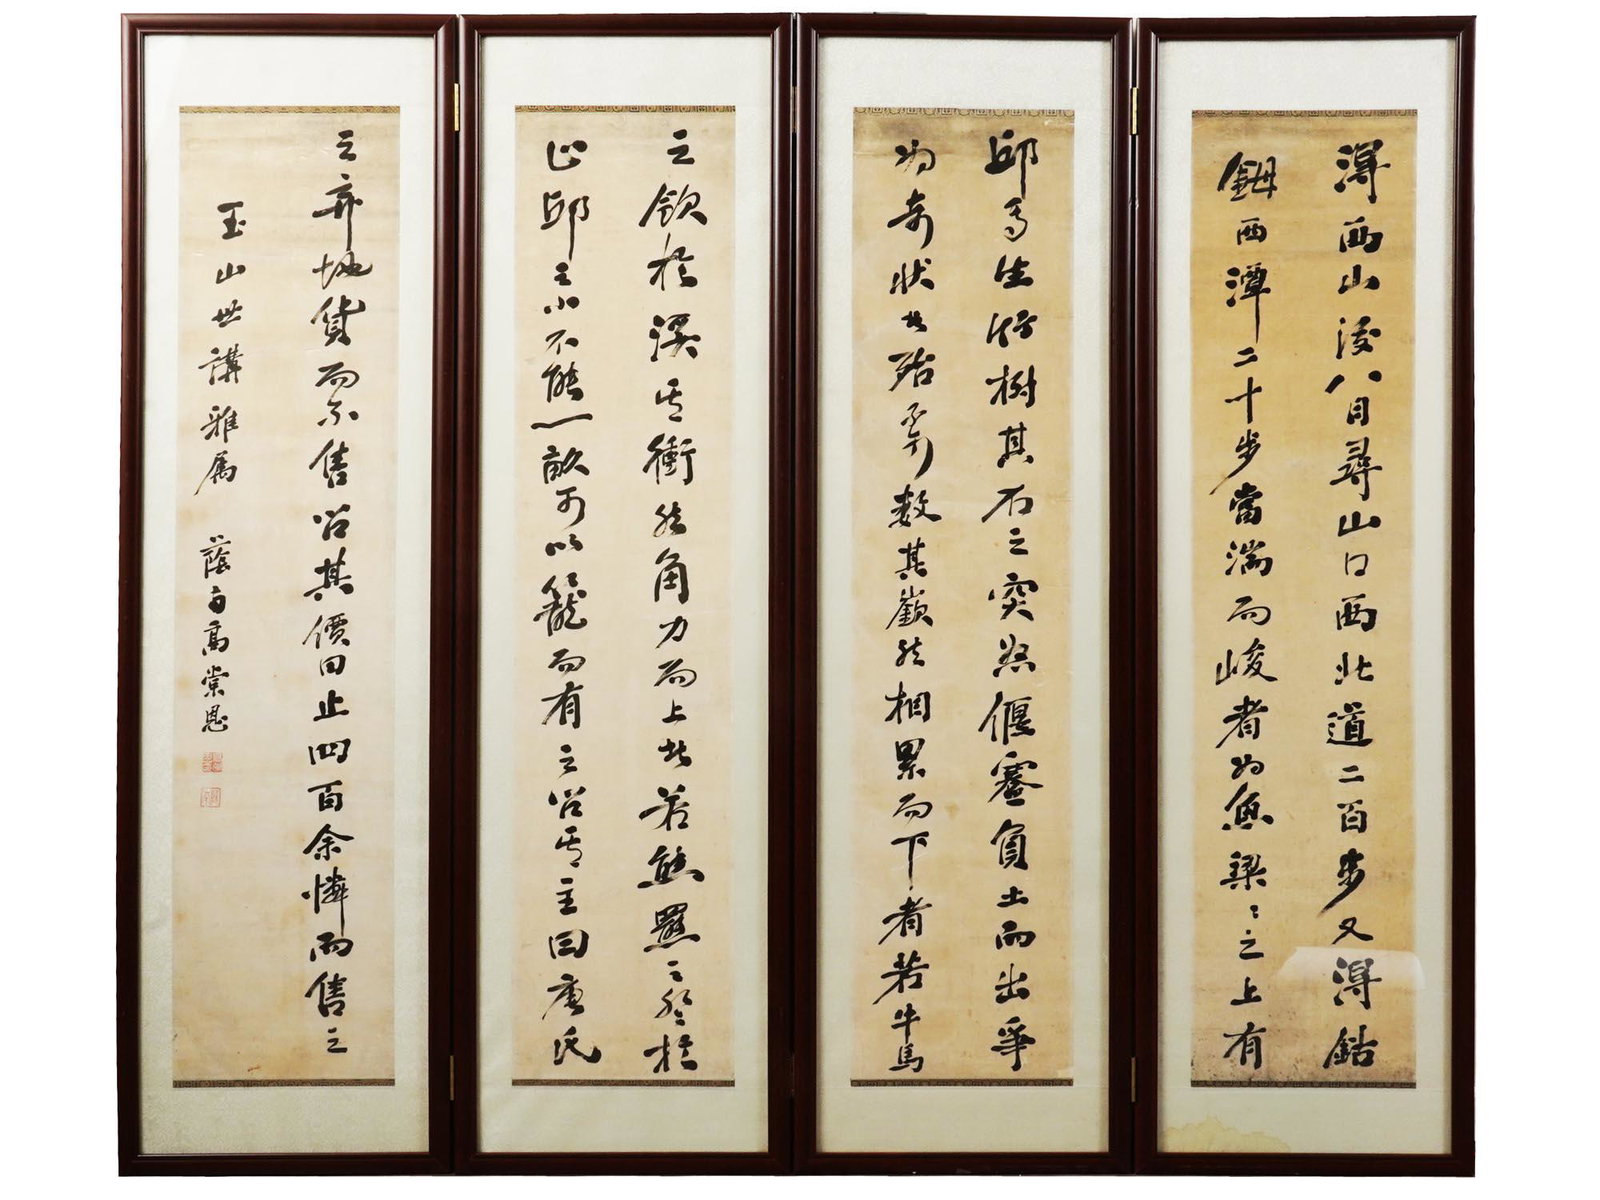 得西山後八日尋山口西北道二百步又得鈷
鉧西潭二十步當湍而峻者為魚梁〻之上有
邱焉生竹樹其石之突怒偃蹇負土而出爭
為奇狀者殆不可數其嶔然相累而下者若牛馬
之飲於溪其衝然角力而上者若熊羆之登於
山邱之小不能一畝可以籠而有之問其主曰唐氏
之棄地貨而不售問其價曰止四百余憐而售之
玉山世講雅屬 蔭方高棠恩